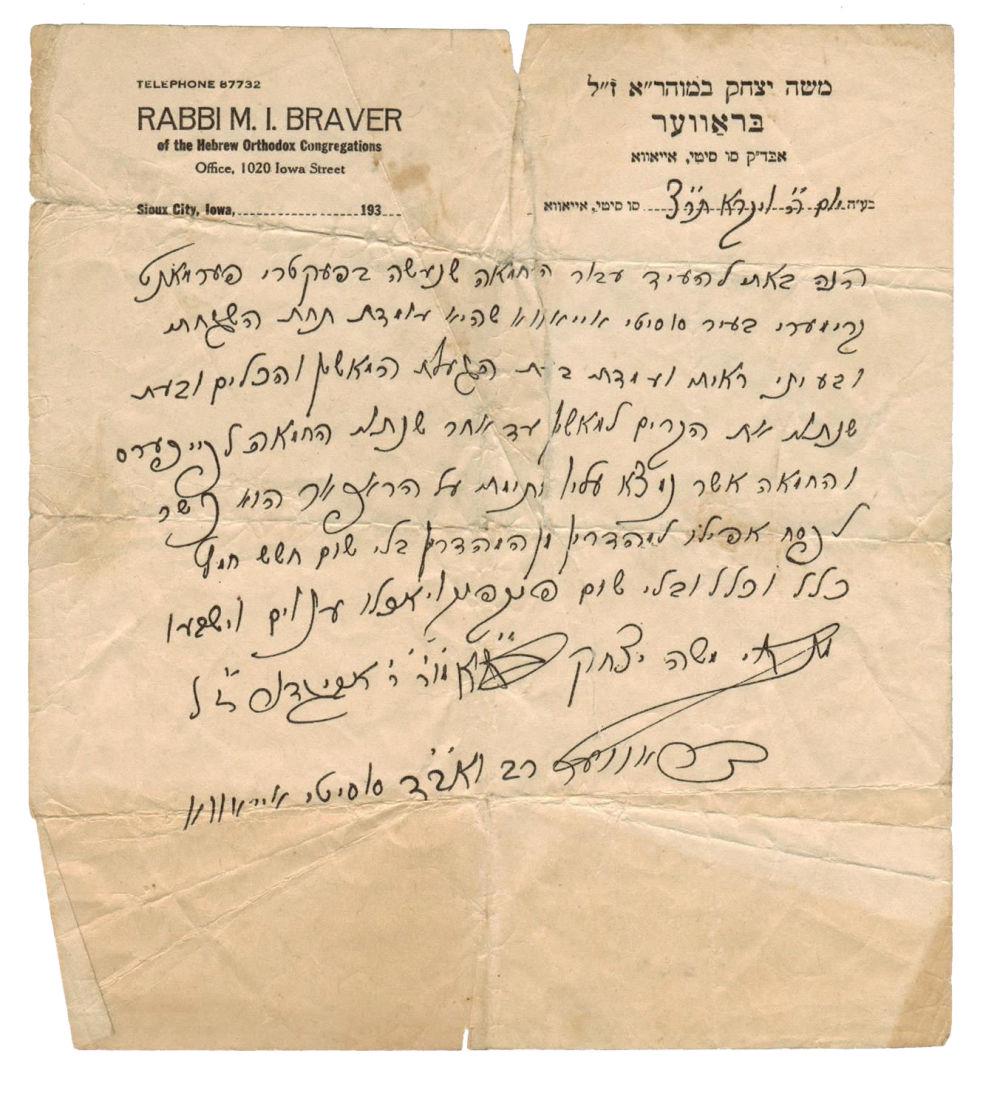 TELEPHONE 87732
RABBI M. I. BRAVER
of the Hebrew Orthodox Congregations
Office, 1020 Iowa Street
Sioux City, Iowa, 193
משה יצחק במוהר״א ז״ל
בראַווער
אבד״ק סו סיטי, אייאווא
בע״ה יום ד׳ ויקרא תר״צ סו סיטי, אייאווא
הנה באתי להעיד עבור החמאה שנעשה בפעקטרי פערמאנט
קרימערי בעיר סוסיטי אייאווא שהיא עומדת תחת השגחתי
ובעיני ראיתי ועמדתי בעת הגעלת המאשין והכלים ובעת
שנתנו את הקרים למאשין עד אחר שנתנו החמאה לפייפערס
והחמאה אשר נמצא עליו חתימתי על הראפער הוא כשר
לפסח אפילו למהדרין מן המהדרין בלי שום חשש חמץ
כלל וכלל ובלי שום פקפוק ויאכלו ענוים וישבעו
משה יצחק ז״ל
בראווער רב ואב״ד סוסיטי אייאווא